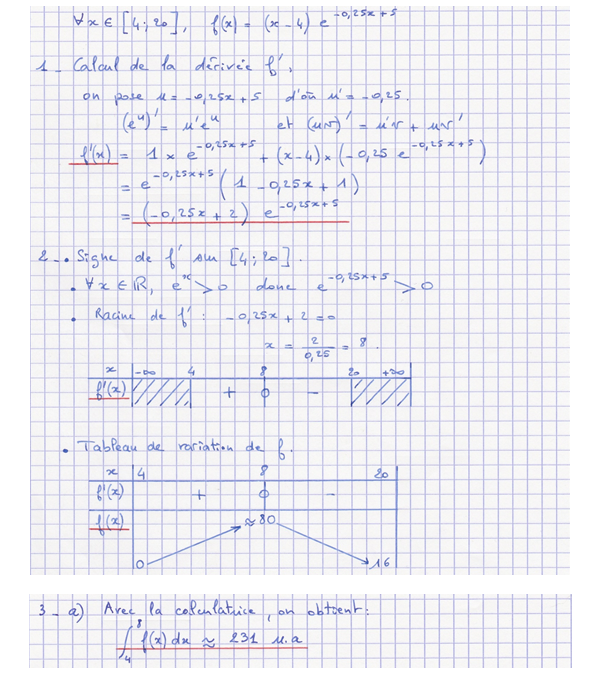 ∀x ∈ [4;20], f(x) = (x-4) e^{-0,25x+5}
1 - Calcul de la dérivée f',
on pose u = -0,25x+5 d'où u' = -0,25.
(e^u)' = u'e^u et (uv)' = u'v + uv'
f'(x) = 1 × e^{-0,25x+5} + (x-4) × (-0,25 e^{-0,25x+5})
= e^{-0,25x+5} (1 - 0,25x + 1)
= (-0,25x + 2) e^{-0,25x+5}
2 - • Signe de f' sur [4;20].
• ∀x ∈ ℝ, e^x > 0 donc e^{-0,25x+5} > 0
• Racine de f' : -0,25x + 2 = 0
x = 2/0,25 = 8.
x -∞ 4 8 20 +∞
f'(x) + 0 -
• Tableau de variation de f.
x 4 8 20
f'(x) + 0 -
f(x) ≈ 80
0 16
3 - a) Avec la calculatrice, on obtient:
∫_4^8 f(x) dx ≈ 231 u.a